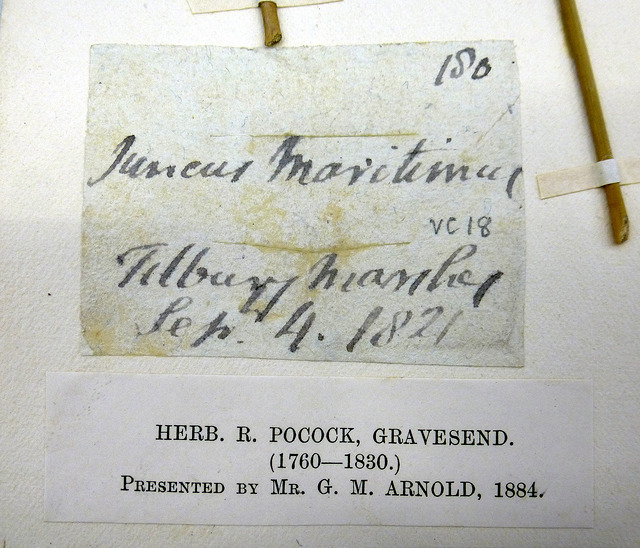 180
Juncus Maritimus
VC 18
Tilbury Marshes
Sep. 4. 1821
HERB. R. POCOCK, GRAVESEND.
(1760—1830.)
PRESENTED BY MR. G. M. ARNOLD, 1884.